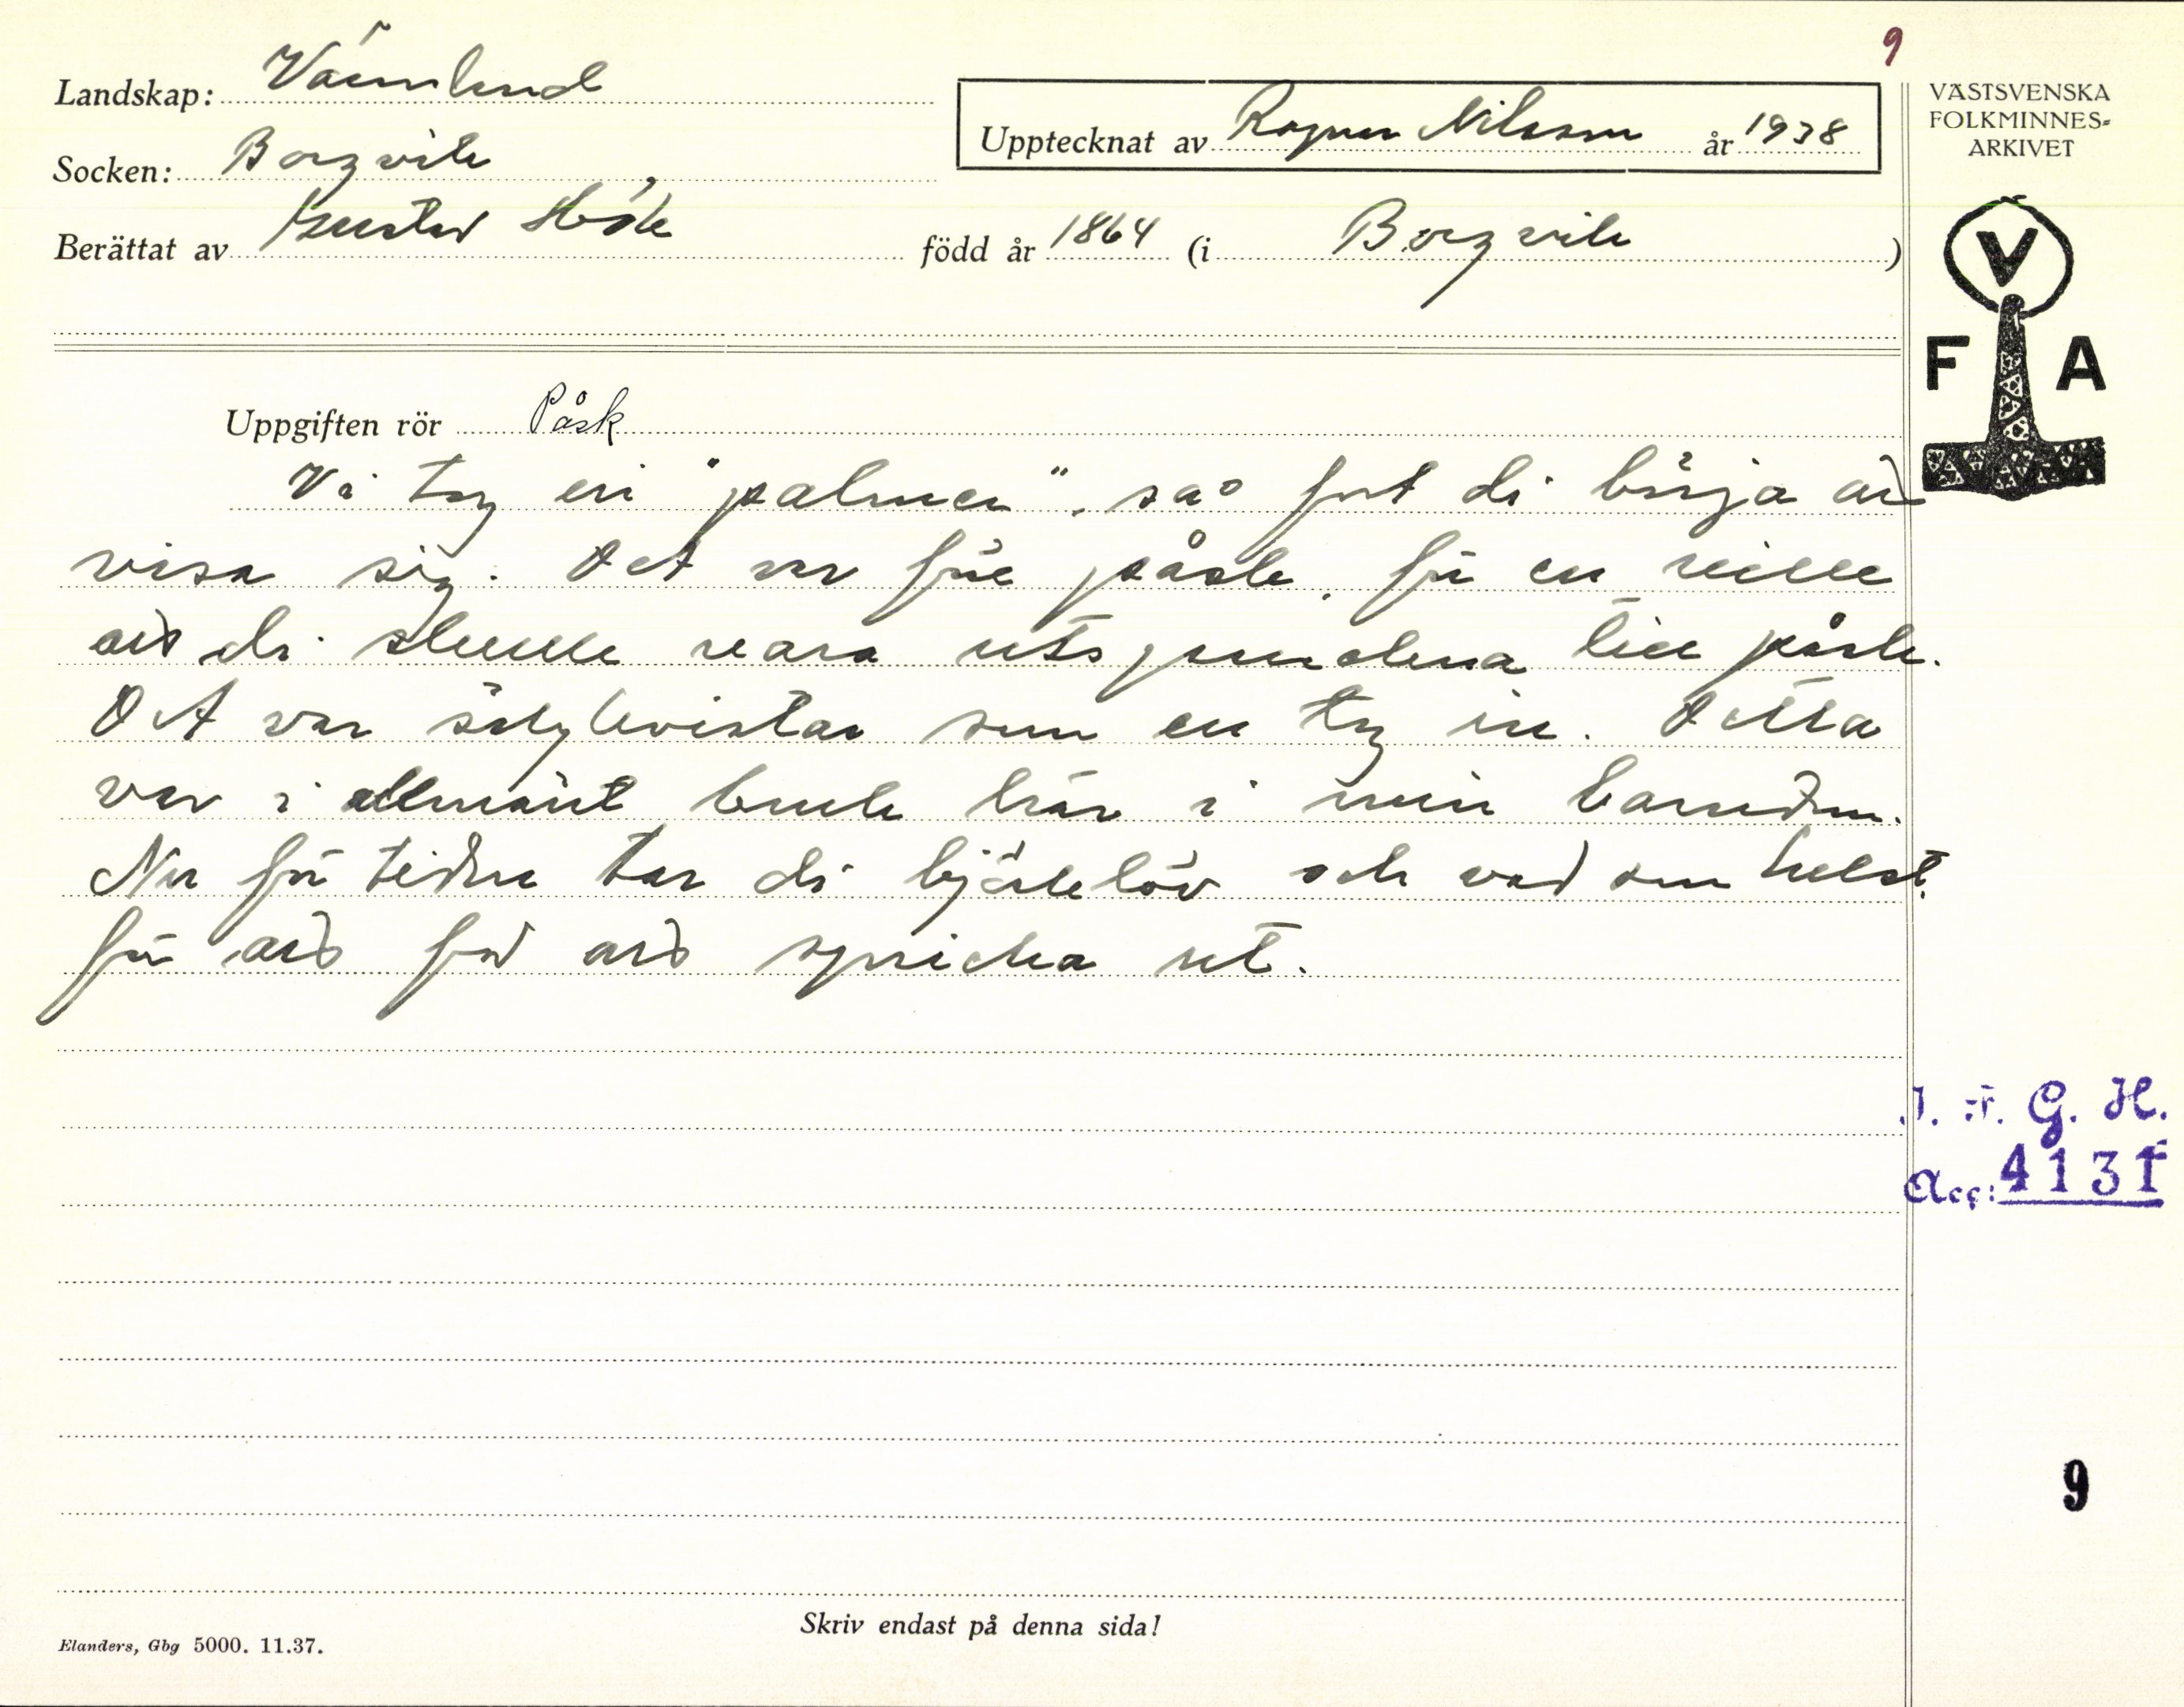 9
Landskap: Värmland
Socken: Borgvik
Upptecknat av Ragnar Nilsson år 1938
Berättat av Gustav Höök född år 1864 (i Borgvik)
VÄSTSVENSKA
FOLKMINNES-
ARKIVET
V
F A
Uppgiften rör Påsk
Vi tog in "palmer", så fort di börja
visa sig. Det var före påsk, för en ville
di skulle vara utsprundna till påsk.
Det var sälgkvistar som en tog in. Detta
var i allmänt bruk här i min barndom.
Nu för tiden tar di björklöv och vad som helst,
för få spricka ut.
I. F. G. H.
Acc: 4131
9
Skriv endast på denna sida!
Elanders, Gbg 5000. 11.37.